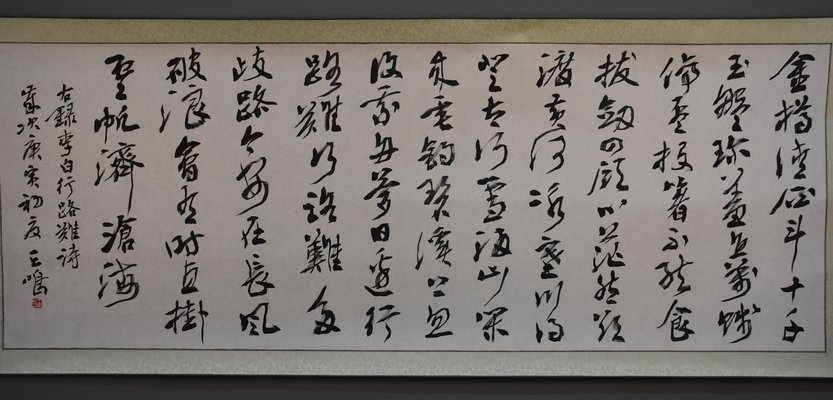 金樽清酒斗十千
玉盤珍羞直萬錢
停杯投箸不能食
拔劍四顧心茫然欲
渡黃河冰塞川將
登太行雪滿山閑
來垂釣碧溪上忽
復乘舟夢日邊行
路難行路難多
歧路今安在長風
破浪會有時直掛
雲帆濟滄海
右錄李白行路難詩
歲次庚寅初夏